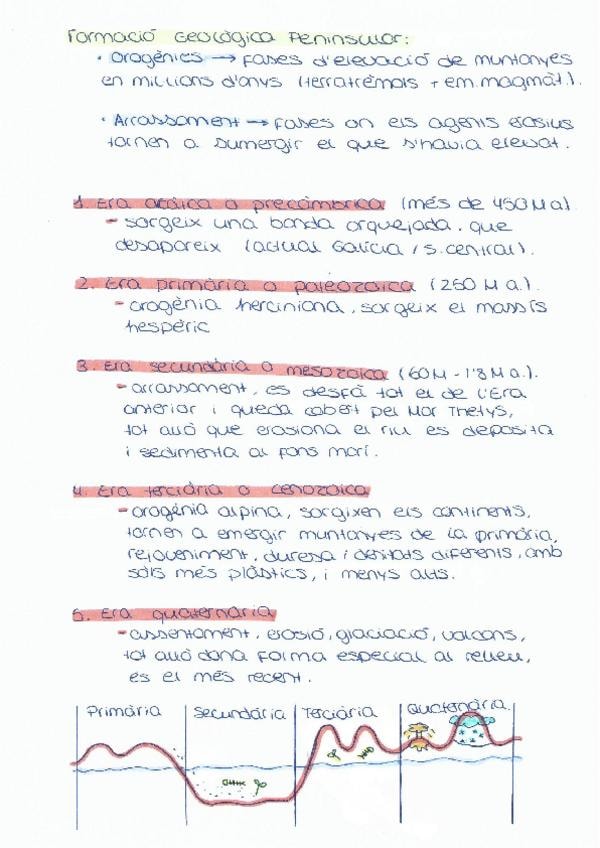 Formació Geològica Peninsular:
• Orogènies → Fases d'elevació de muntanyes
en millions d'anys (terratrèmols + em.magmàt.).
• Arrassament → Fases on els agents erosius
tornen a sumergir el que s'havia elevat.
1. Era atòica o precàmbrica (més de 450M a)
- sorgeix una banda arquejada, que
desapareix (actual Galícia / S.central).
2. Era primària o paleozoica (250 M a.).
- orogènia herciniana, sorgeix el massís
hespèric
3. Era secundària o mesozoica (60M - 1'8M a.).
- arrassament, es desfà tot el de l'Era
anterior i queda cobert pel Mar Thetys,
tot allò que erosiona el riu es deposita
i sedimenta al fons marí.
4. Era terciària o cenozoica
- orogènia alpina, sorgixen els continents,
tornen a emergir muntanyes de la primària,
rejoveniment, duresa i densitats diferents, amb
sòls més plàstics, i menys alts.
5. Era quaternària
- assentament, erosió, glaciació, volcans,
tot allò dona forma especial al relleu,
és el més recent.
Primària secundària Terciària Quaternària